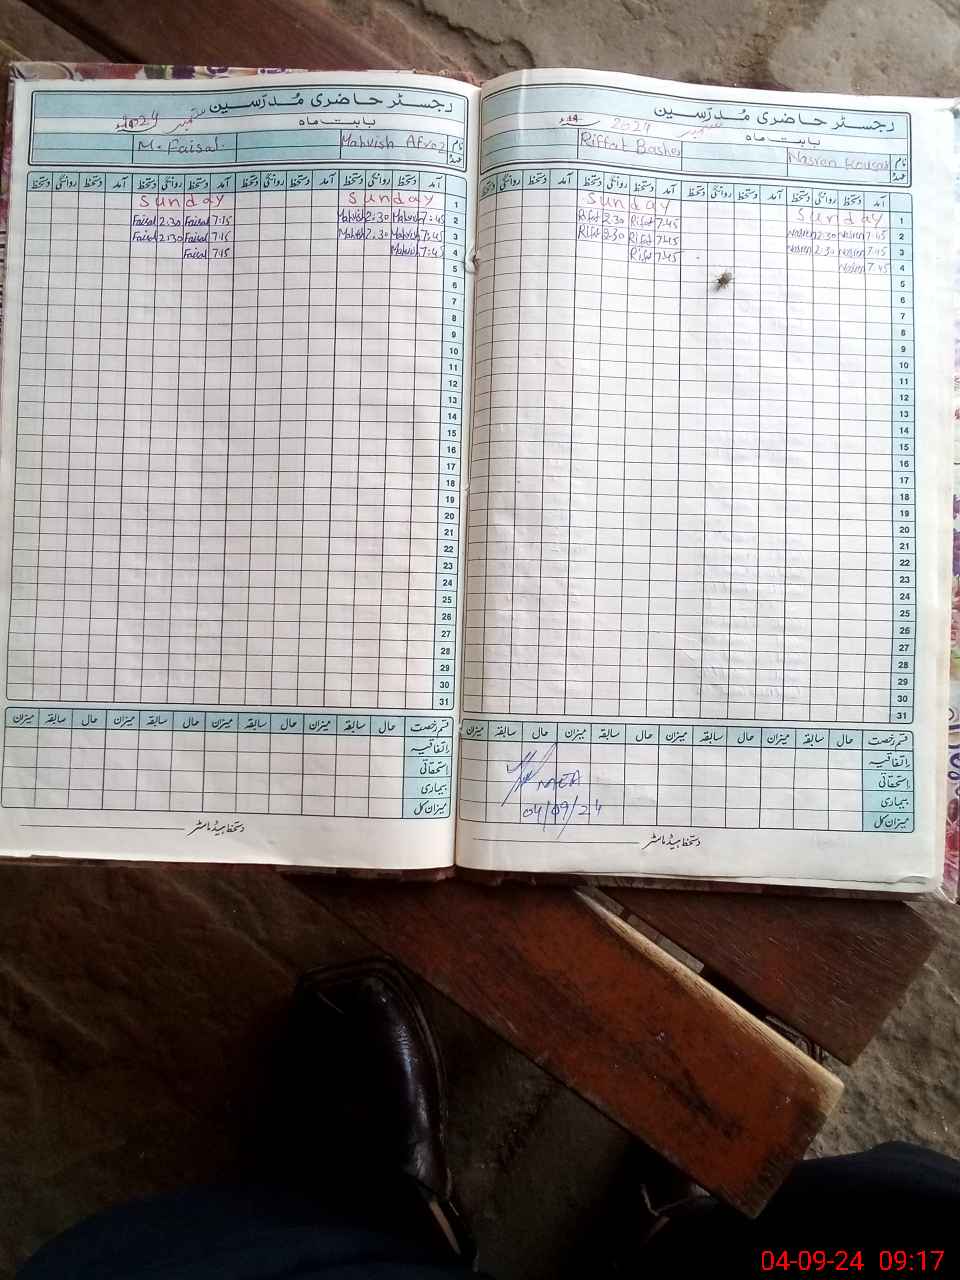 رجسٹر حاضری مُدرّسین
بابت ماہ ستمبر 2024ء
نام Nasren Kousar Riffat Basher
عہدہ
آمد دستخط روانگی دستخط آمد دستخط روانگی دستخط آمد دستخط روانگی دستخط
1 Sunday Sunday
2 7:45 Nasren 2:30 Nasren 7:45 Rifat 2:30 Rifat
3 7:45 Nasren 2:30 Nasren 7:45 Rifat 2:30 Rifat
4 7:45 Nasren 7:45 Rifat
5
6
7
8
9
10
11
12
13
14
15
16
17
18
19
20
21
22
23
24
25
26
27
28
29
30
31
قسم رخصت حال سابقہ میزان حال سابقہ میزان حال سابقہ میزان حال سابقہ میزان
اتفاقیہ
استحقاقی
بیماری
میزان کل
MEA
04/09/24
دستخط ہیڈ ماسٹر
رجسٹر حاضری مُدرّسین
بابت ماہ ستمبر 2024ء
نام Mahvish Afroz M. Faisal
عہدہ
آمد دستخط روانگی دستخط آمد دستخط روانگی دستخط آمد دستخط روانگی دستخط آمد دستخط روانگی دستخط
1 Sunday Sunday
2 7:45 Mahvish 2:30 Mahvish 7:15 Faisal 2:30 Faisal
3 7:45 Mahvish 2:30 Mahvish 7:15 Faisal 2:30 Faisal
4 7:45 Mahvish 7:15 Faisal
5
6
7
8
9
10
11
12
13
14
15
16
17
18
19
20
21
22
23
24
25
26
27
28
29
30
31
قسم رخصت حال سابقہ میزان حال سابقہ میزان حال سابقہ میزان حال سابقہ میزان
اتفاقیہ
استحقاقی
بیماری
میزان کل
دستخط ہیڈ ماسٹر
04-09-24 09:17